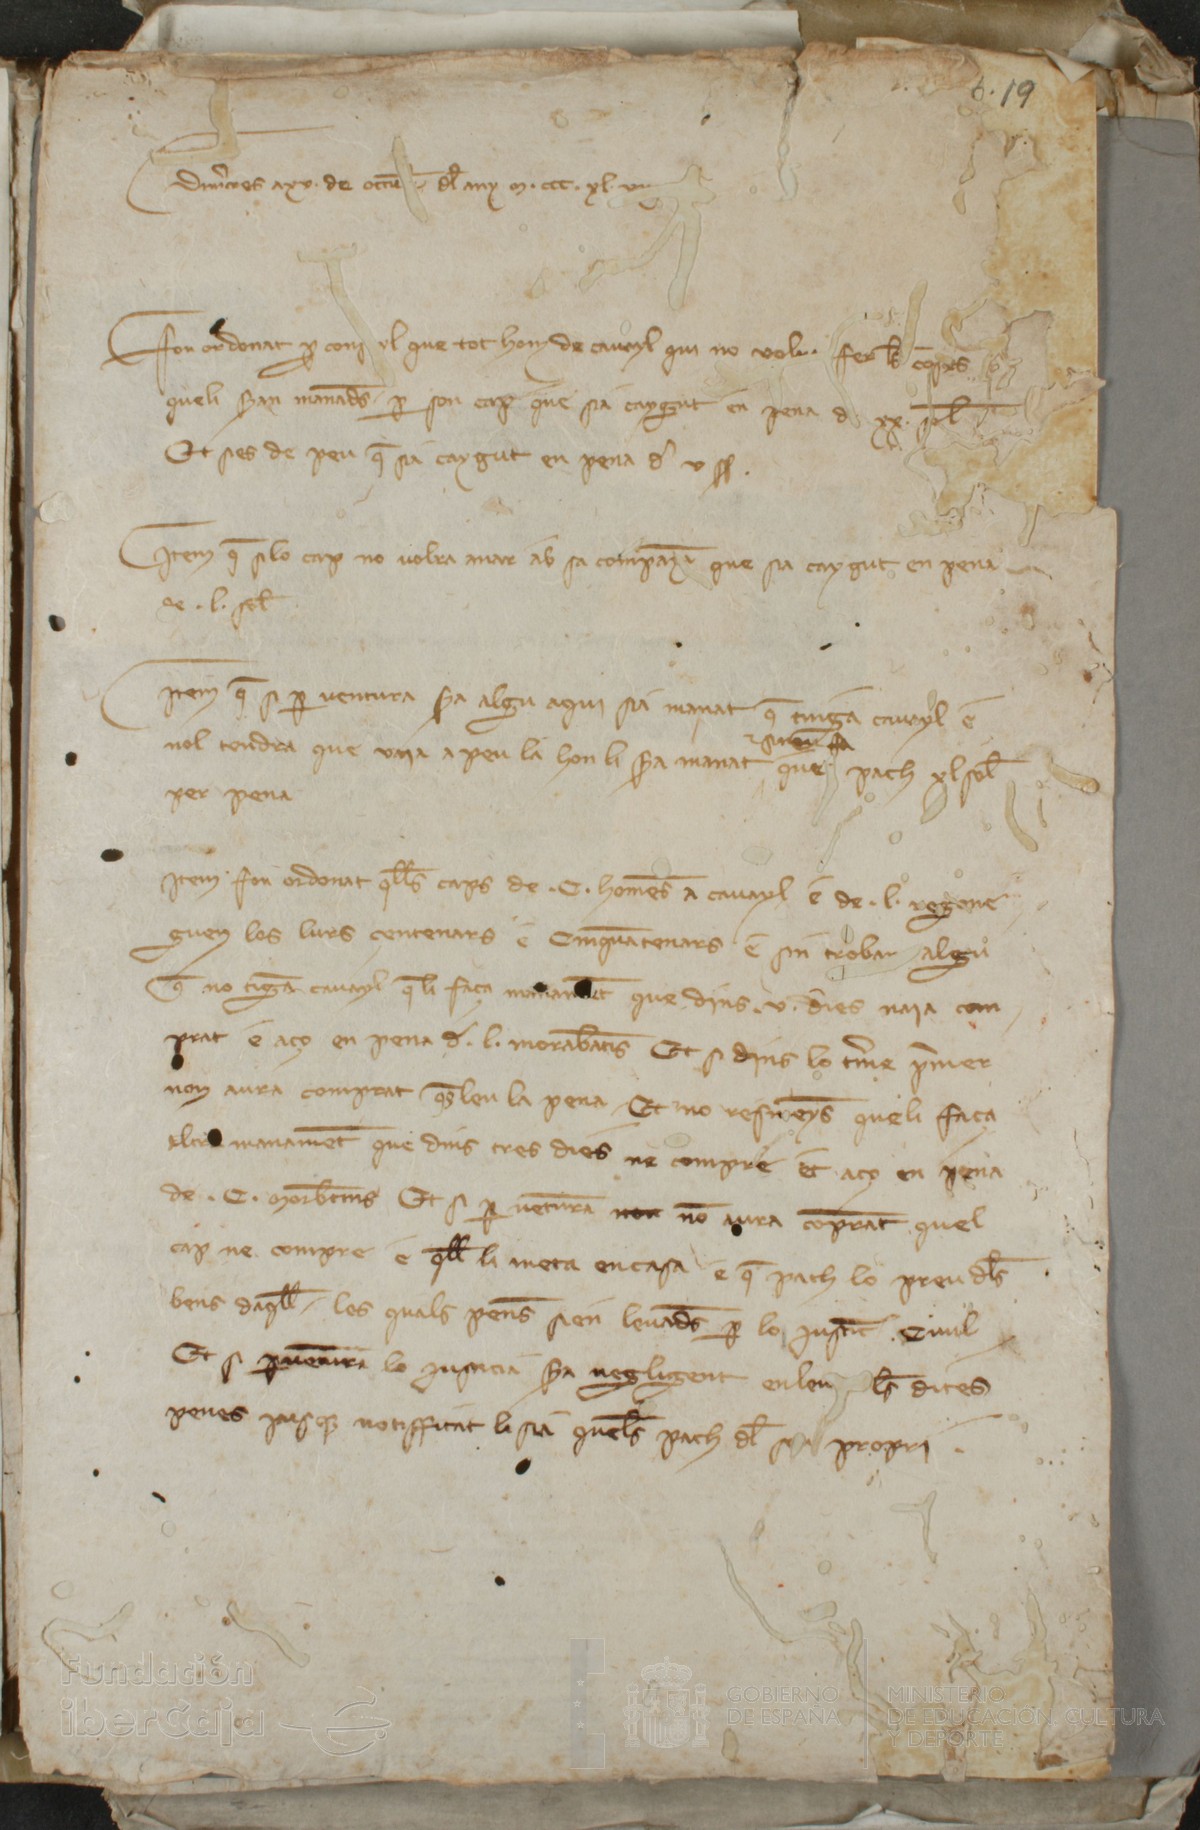 6. 19
Dim̃cres axv. de octub dl̃ any M.CCC.xl.vii
Fon ordonat p̱ conseyl que tot hom de cavayl qui no volra fer los
que li seran manads p̱ son cap que sia caygut en pena d xx. sol
Et si es de peu q̃ sia caygut en pena d' v ss.
Item q̃ si lo cap no volra anar ab sa companya que sia caygut en pena
de .l. sol
Item q̃ si p̱ ventura sera algu a qui sia manat q̃ tinga cavayl e
nol tendra que vaia a peu la hon li sera manat que pach xl sol
per pena
Item fon ordonat q̃lls caps de .C. homẽs a cavayl e de .l. regone
guen los lurs centenars e Cinquãtenars e si n trobar algu
q̃ no tiga cavayl q̃ li faça manamẽt que dins .v. dies naia com
prat e aço en pena d' .l. morabatis Et si dins lo t̃me p̃mer
non aura comprat q̃s leu la pena Et no resmeys que li faça
altre manamẽt que dins tres dies ne compre Et aço en pena
de .C. morbtins Et si p̱ vẽtura no aura cõprat quel
cap ne compre e q̃ll li meta en casa e q̃ pach lo preu dl̃s
bens daq̃ll les quals penes sien levads p̱ lo justic̃ Civil
Et si p̱ ventura lo justicia sera negligent en lev ls dites
penes pusq̃ notifficat li sia quels pach dl̃ seu propri
Fundación
iberCaja
GOBIERNO
DE ESPAÑA
MINISTERIO
DE EDUCACIÓN, CULTURA
Y DEPORTE